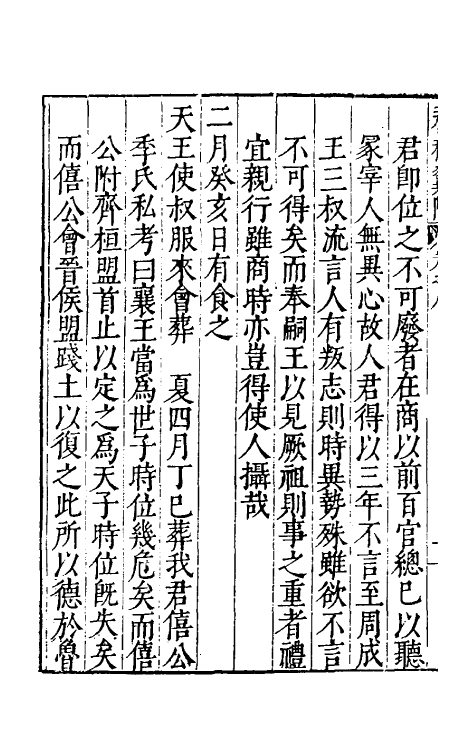 君卽位之不可廢者在商以前百官緫已以聽
冢宰人無異心故人君得以三年不言至周成
王三叔流言人有叛志則時異勢殊雖欲不言
不可得矣而奉嗣王以見厥祖則事之重者禮
宜親行雖商時亦豈得使人攝哉
二月癸亥日有食之
天王使叔服來會葬　夏四月丁巳葬我君僖公
季氏私考曰襄王當爲世子時位幾危矣而僖
公附齊桓盟首止以定之爲天子時位旣失矣
而僖公會晉侯盟踐土以復之此所以德於魯